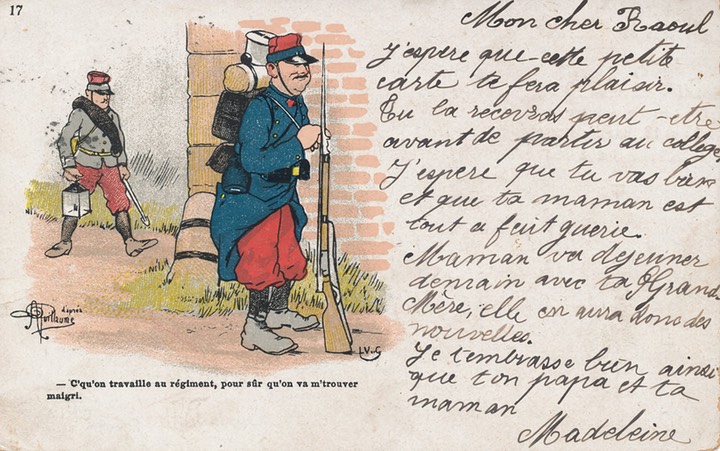 17
Mon cher Raoul
j'espere que cette petite
carte te fera plaisir.
Tu la recevras peut-etre
avant de partir au college
J'espere que tu vas bien
et que ta maman est
tout a fait guerie.
Maman va dejeuner
demain avec ta Grand
Mère, elle en aura donc des
nouvelles.
Je t'embrasse bien ainsi
que ton papa et ta
maman
Madeleine
d'après
A Guillaume
L.V.&G
— C'qu'on travaille au régiment, pour sûr qu'on va m'trouver
maigri.